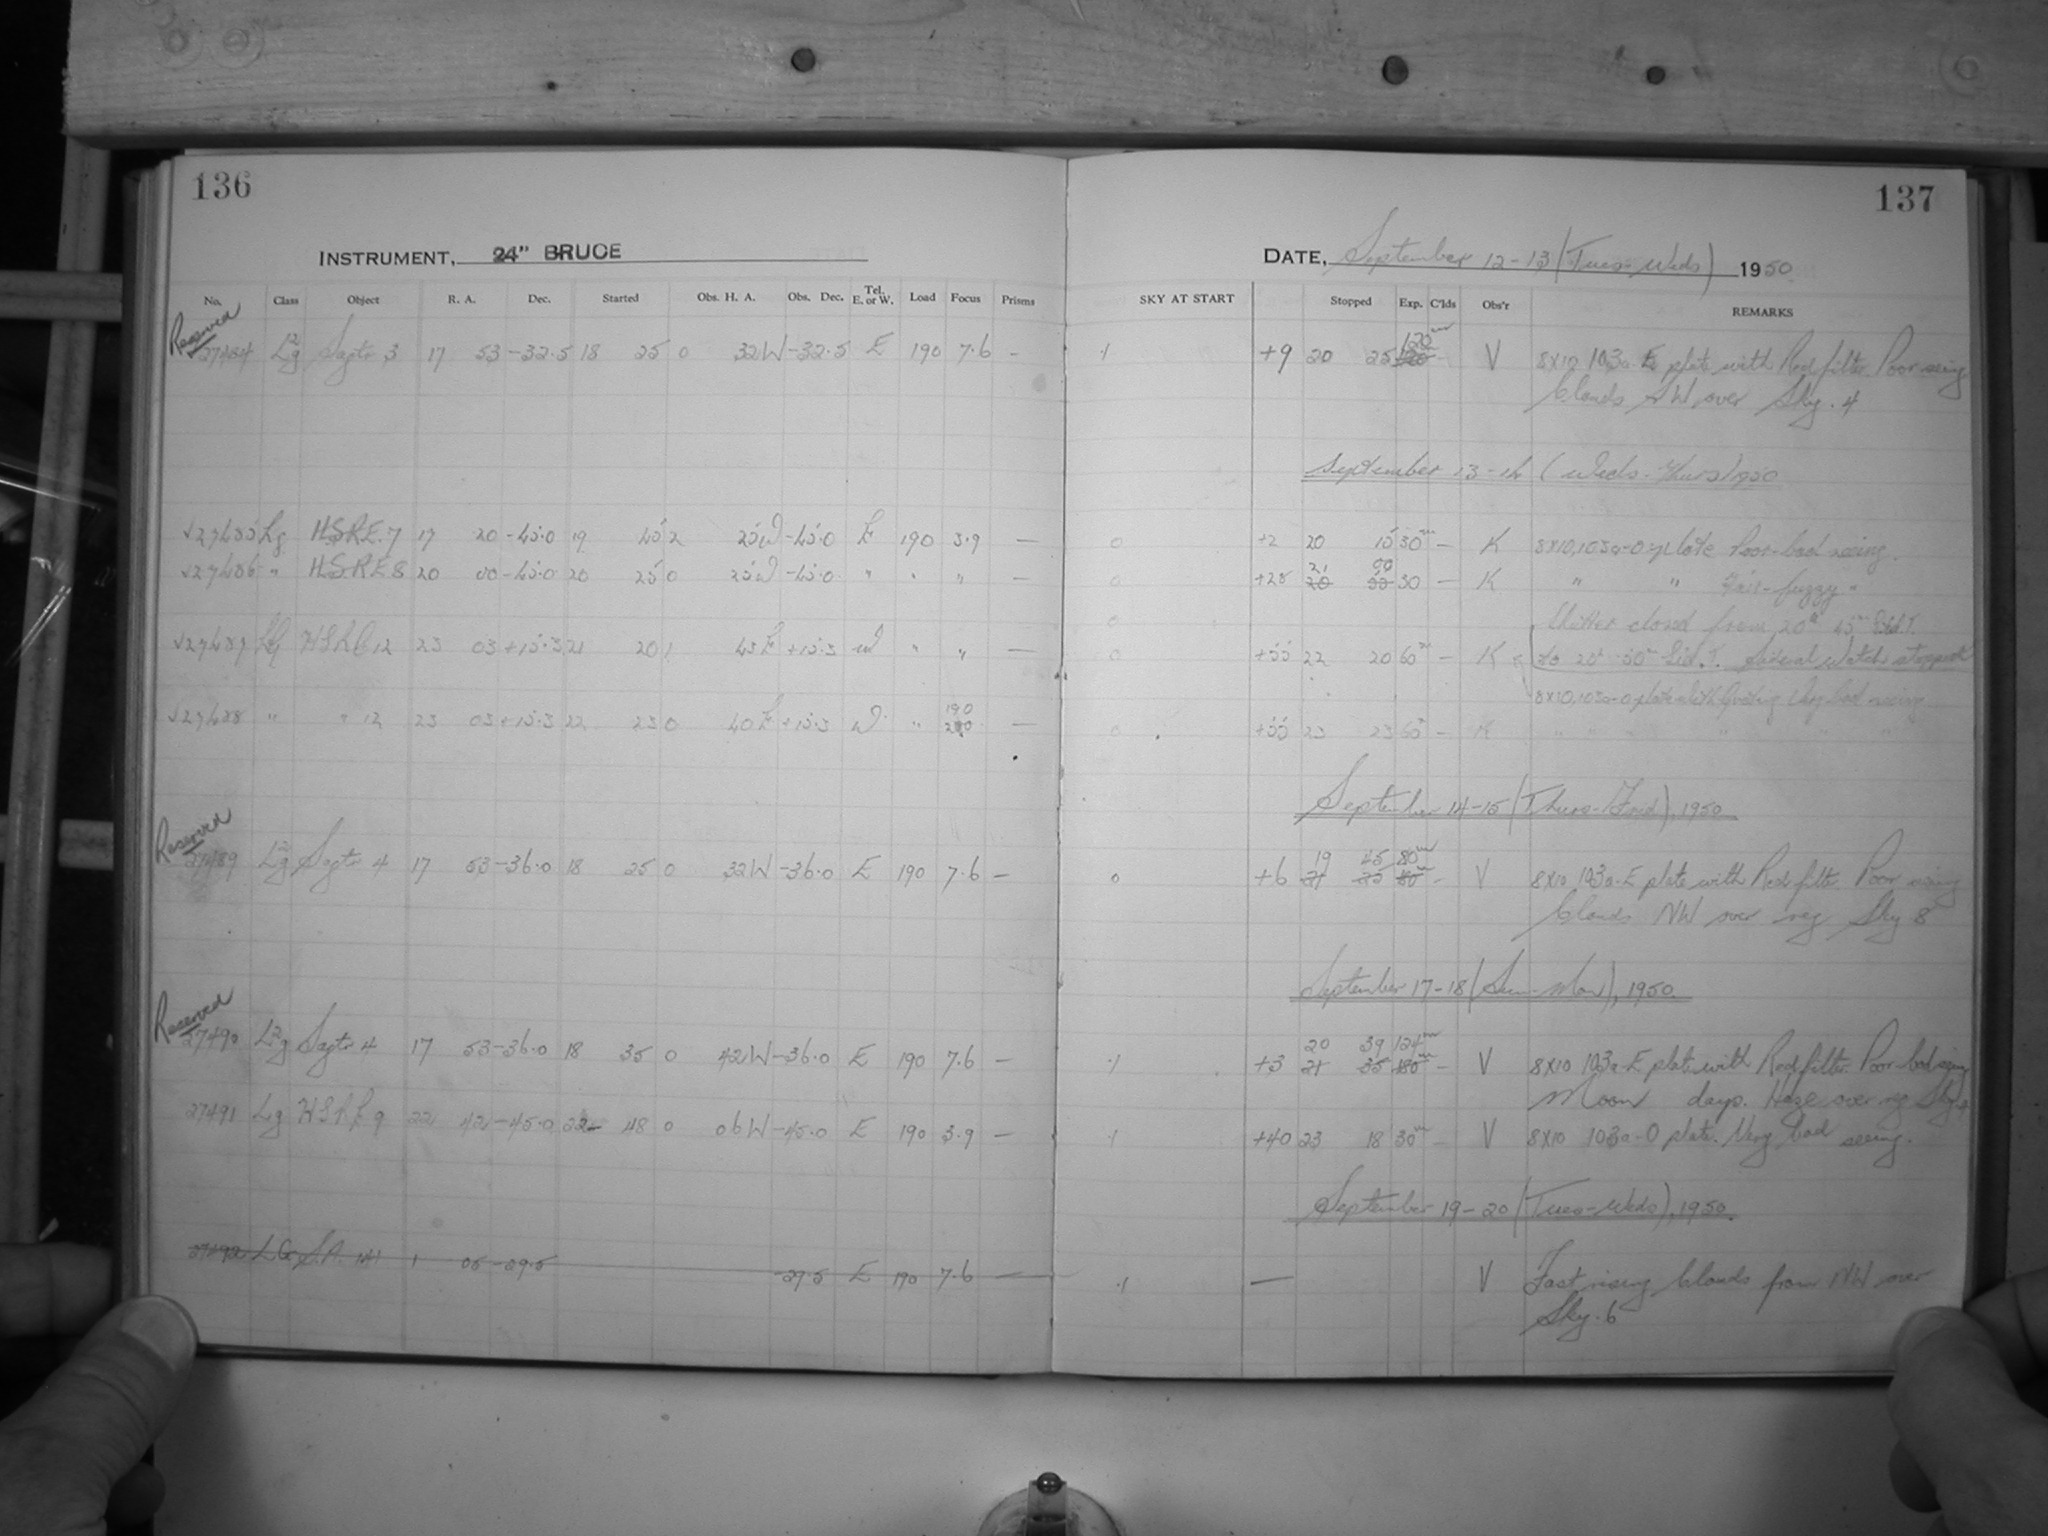 136
137
INSTRUMENT, 24" BRUCE
DATE, September 12-13 (Tues-Weds) 1950
No. Class Object R. A. Dec. Started Obs. H. A. Obs. Dec. Tel. E. or W. Load Focus Prisms SKY AT START Stopped Exp. C'lds Obs'r REMARKS
Reserved
27484 Sagtr 3 17 53 -32.5 18 25 0 32W -32.5 E 190 7.6 - .1 +9 20 25 120m - V 8x10 103a-E plate with Red filter. Poor seeing
Clouds NW over Sky .4
September 13-14 (Weds-Thurs) 1950
27485 Lg H.S.R.E. 7 17 20 -45.0 19 45 2 25W -45.0 E 190 3.9 - 0 +2 20 15 30m - K 8x10, 103a-O plate Poor-bad seeing.
27486 " H.S.R.E 8 20 00 -45.0 20 25 0 25W -45.0 " " " - 0 +25 21 30 - K " " Fair-fuzzy "
0 closed from 20h 45m Sid. T.
27487 12 23 03 +15.3 21 20 1 43E +15.3 W " " - 0 +55 22 20 60m - K to Sid. T. Sidereal Watch stopped
8x10, 103a-O plate bad seeing
27488 " " 12 23 03 +15.3 22 23 0 40E +15.3 W " 190 - 0 +55 23 23 60m - K " " " " " "
September 14-15 (Thurs-Frid), 1950
Reserved
27489 Sagtr 4 17 53 -36.0 18 25 0 32W -36.0 E 190 7.6 - 0 +6 19 45 80m - V 8x10 103a-E plate with Red filter. Poor seeing
Clouds NW over reg Sky 8
September 17-18 (Sun-Mon), 1950.
Reserved
27490 Sagtr 4 17 53 -36.0 18 35 0 42W -36.0 E 190 7.6 - .1 +3 20 39 124m - V 8x10 103a-E plate with Red filter. Poor-bad seeing
Moon days. Haze over reg Sky
27491 Lg H.S.R.E 9 22 42 -45.0 22 48 0 06W -45.0 E 190 3.9 - .1 +40 23 18 30m - V 8x10 103a-O plate. Very bad seeing.
September 19-20 (Tues-Weds), 1950.
27492 S.A. 141 1 05 -29.5 -29.5 E 190 7.6 - .1 - V Fast rising Clouds from NW over
Sky .6